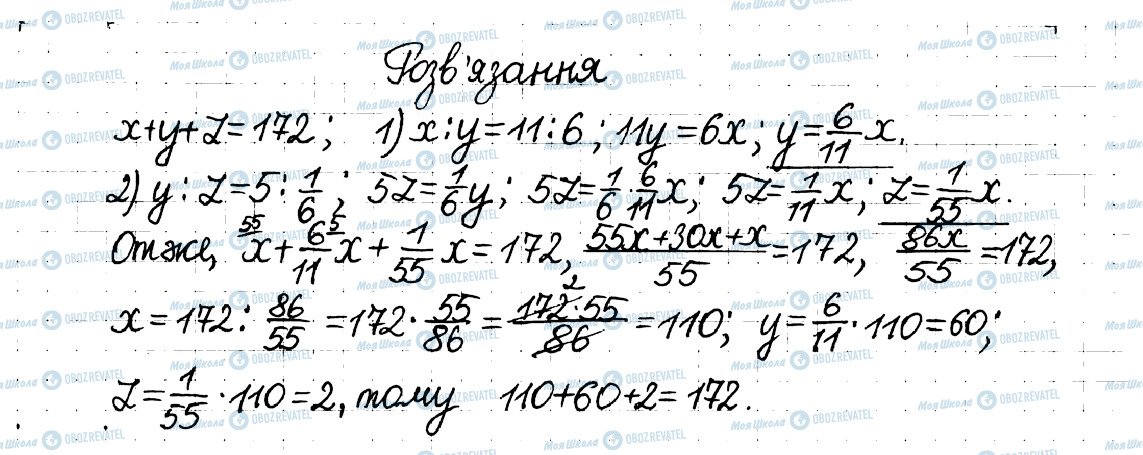 Розв'язання
x+y+z=172; 1) x:y=11:6; 11y=6x; y=6/11 x.
2) y:z=5:1/6; 5z=1/6 y; 5z=1/6·6/11 x; 5z=1/11 x; z=1/55 x.
Отже, x+6/11 x+1/55 x=172, (55x+30x+x)/55=172, 86x/55=172,
x=172:86/55=172·55/86=(172·55)/86=110; y=6/11·110=60;
z=1/55·110=2, тому 110+60+2=172.